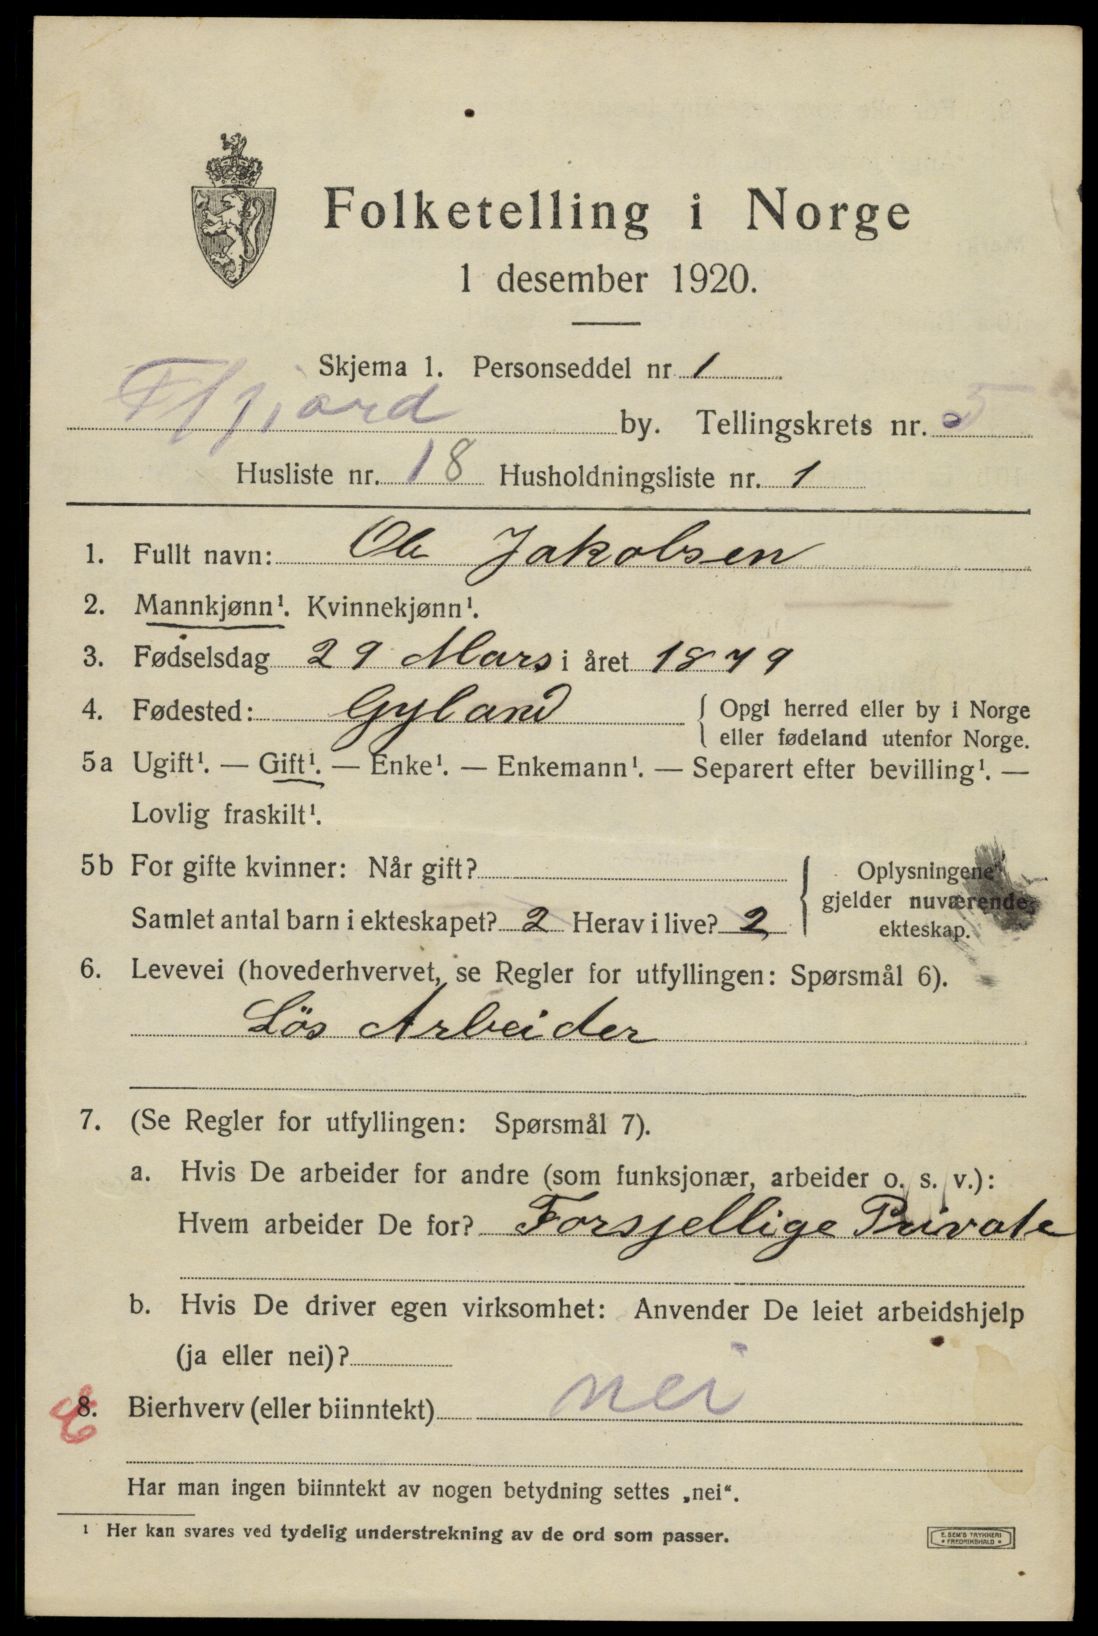 Folketelling i Norge
1 desember 1920.
Skjema 1. Personseddel nr 1
Flfjord by. Tellingskrets nr. 5
Husliste nr. 18 Husholdningsliste nr. 1
1. Fullt navn: Ole Jakobsen
2. Mannkjønn¹. Kvinnekjønn¹.
3. Fødselsdag 29 Mars i året 1879
4. Fødested: Gyland { Opgi herred eller by i Norge
eller fødeland utenfor Norge.
5a Ugift¹. — Gift¹. — Enke¹. — Enkemann¹. — Separert efter bevilling¹. —
Lovlig fraskilt¹.
5b For gifte kvinner: Når gift? { Oplysningene
gjelder nuværende
Samlet antal barn i ekteskapet? 2 Herav i live? 2 ekteskap.
6. Levevei (hovederhvervet, se Regler for utfyllingen: Spørsmål 6).
Lös Arbeider
7. (Se Regler for utfyllingen: Spørsmål 7).
a. Hvis De arbeider for andre (som funksjonær, arbeider o. s. v.):
Hvem arbeider De for? Forsjellige Private
b. Hvis De driver egen virksomhet: Anvender De leiet arbeidshjelp
(ja eller nei)?
8. Bierhverv (eller biinntekt) nei
Har man ingen biinntekt av nogen betydning settes „nei“.
¹ Her kan svares ved tydelig understrekning av de ord som passer.
E. SEM'S TRYKKERI
• FREDRIKSHALD •